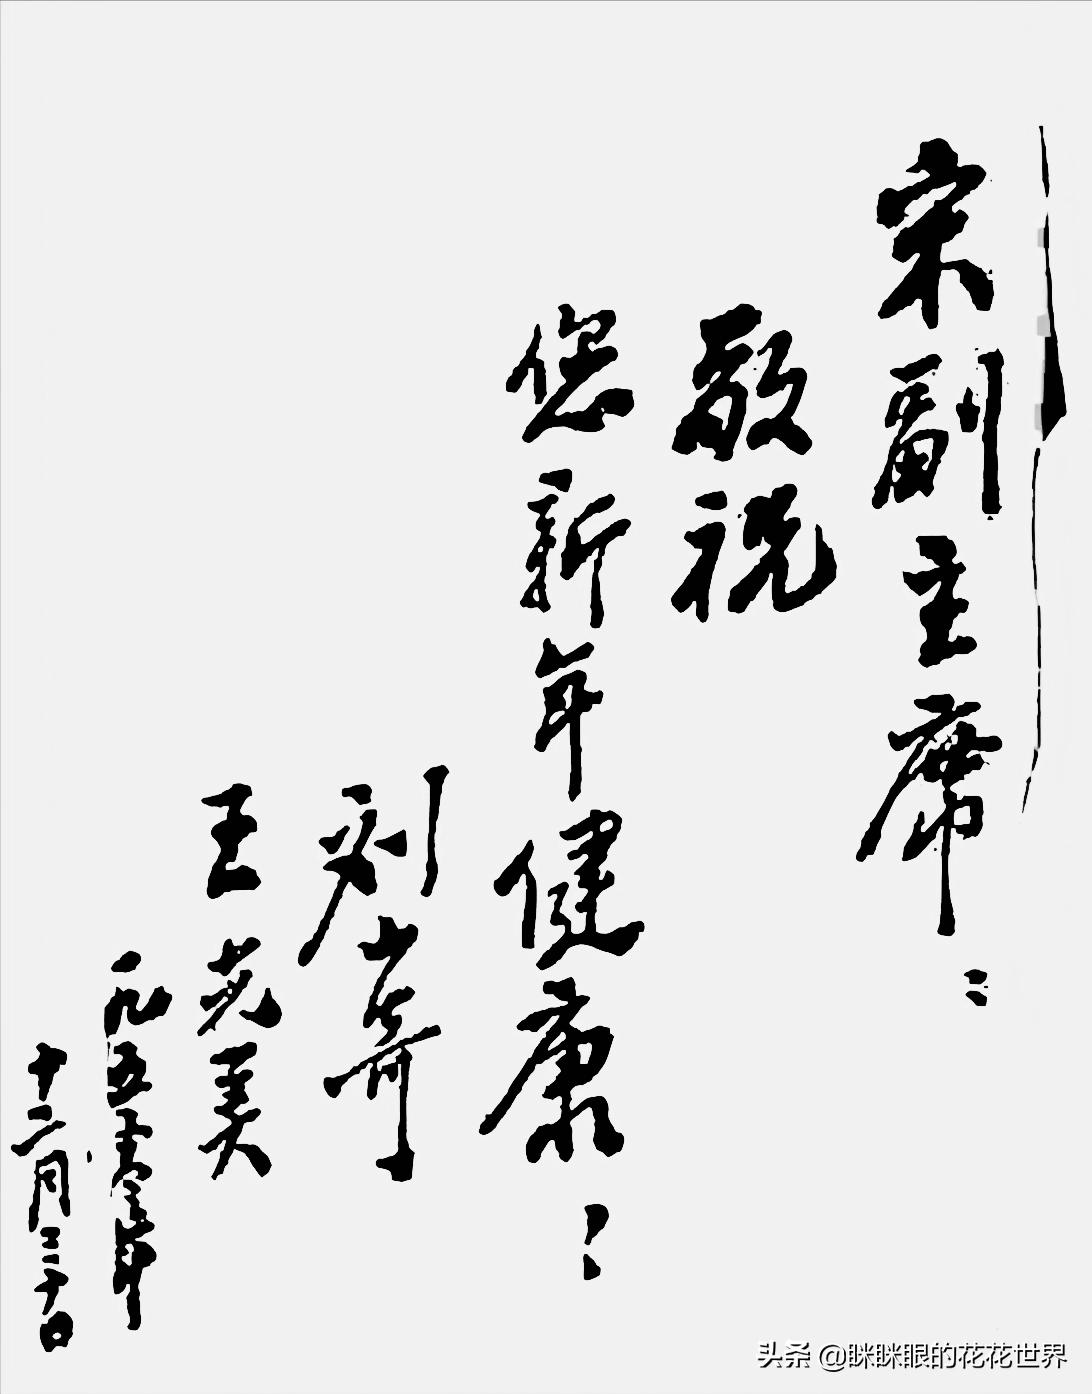 宋副主席：
敬祝
您新年健康！
刘少奇
王光美
一九五年
十二月三十日
头条 @眯眯眼的花花世界